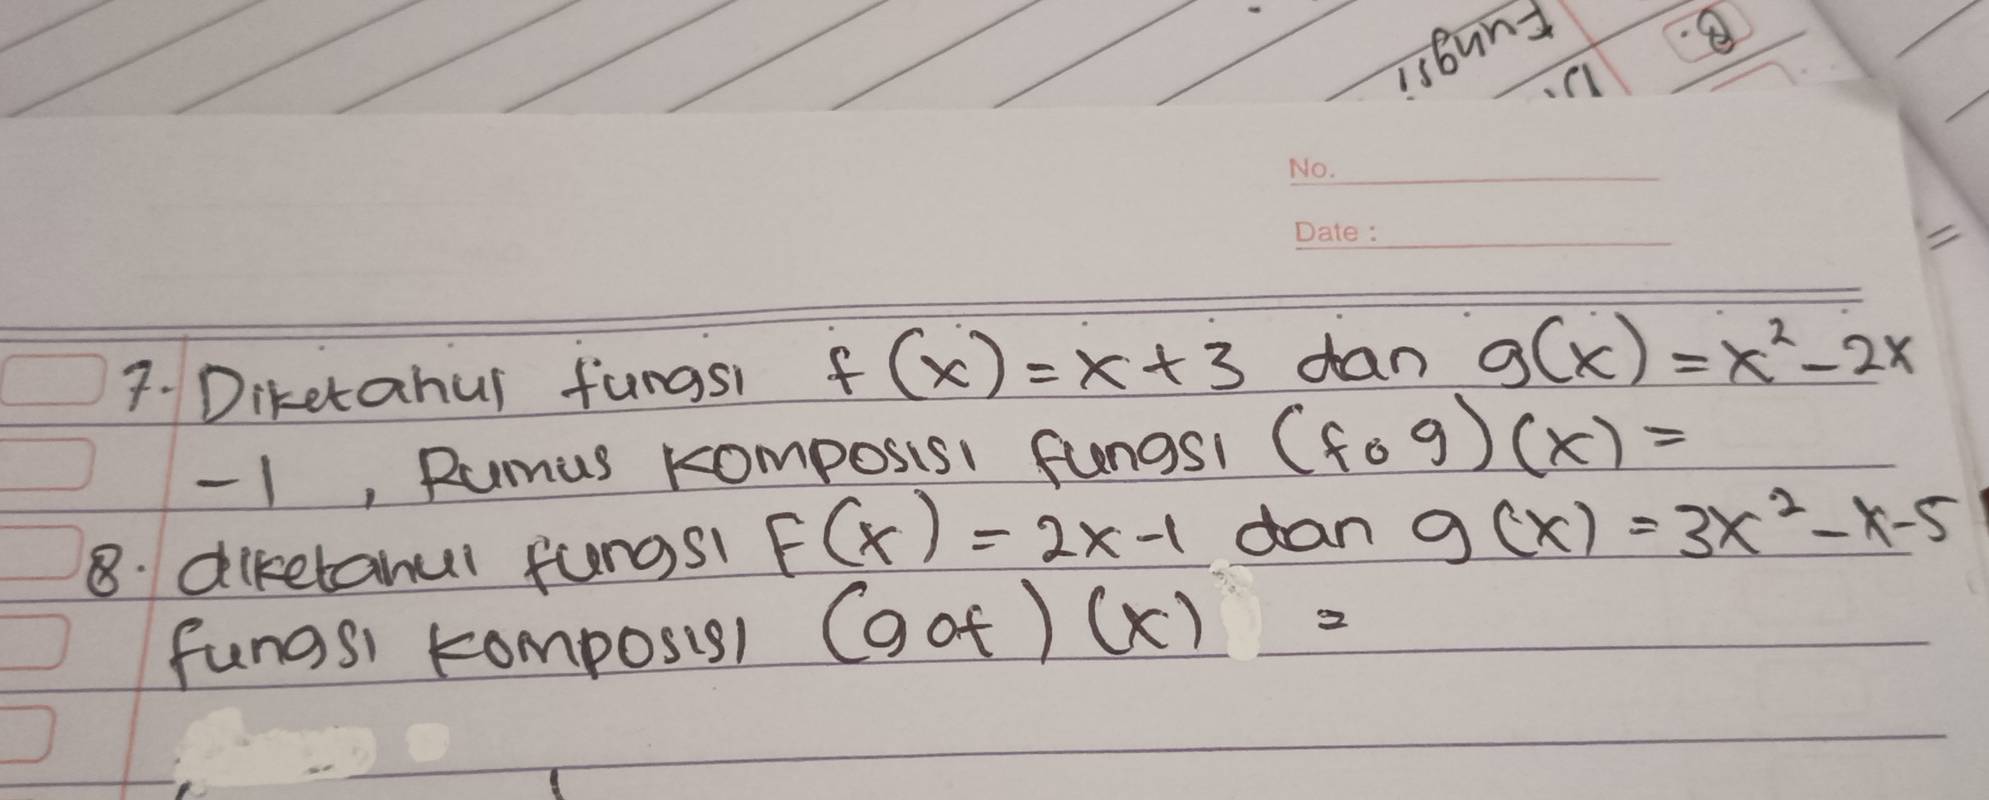 Fungsi
No.
Date :
7. Diketahui fungsi f(x) = x + 3 dan g(x) = x² - 2x
-1 , Rumus komposisi fungsi (f o g)(x) =
8. diketahui fungsi F(x) = 2x-1 dan g(x) = 3x² - x - 5
fungsi komposisi (gof)(x) =